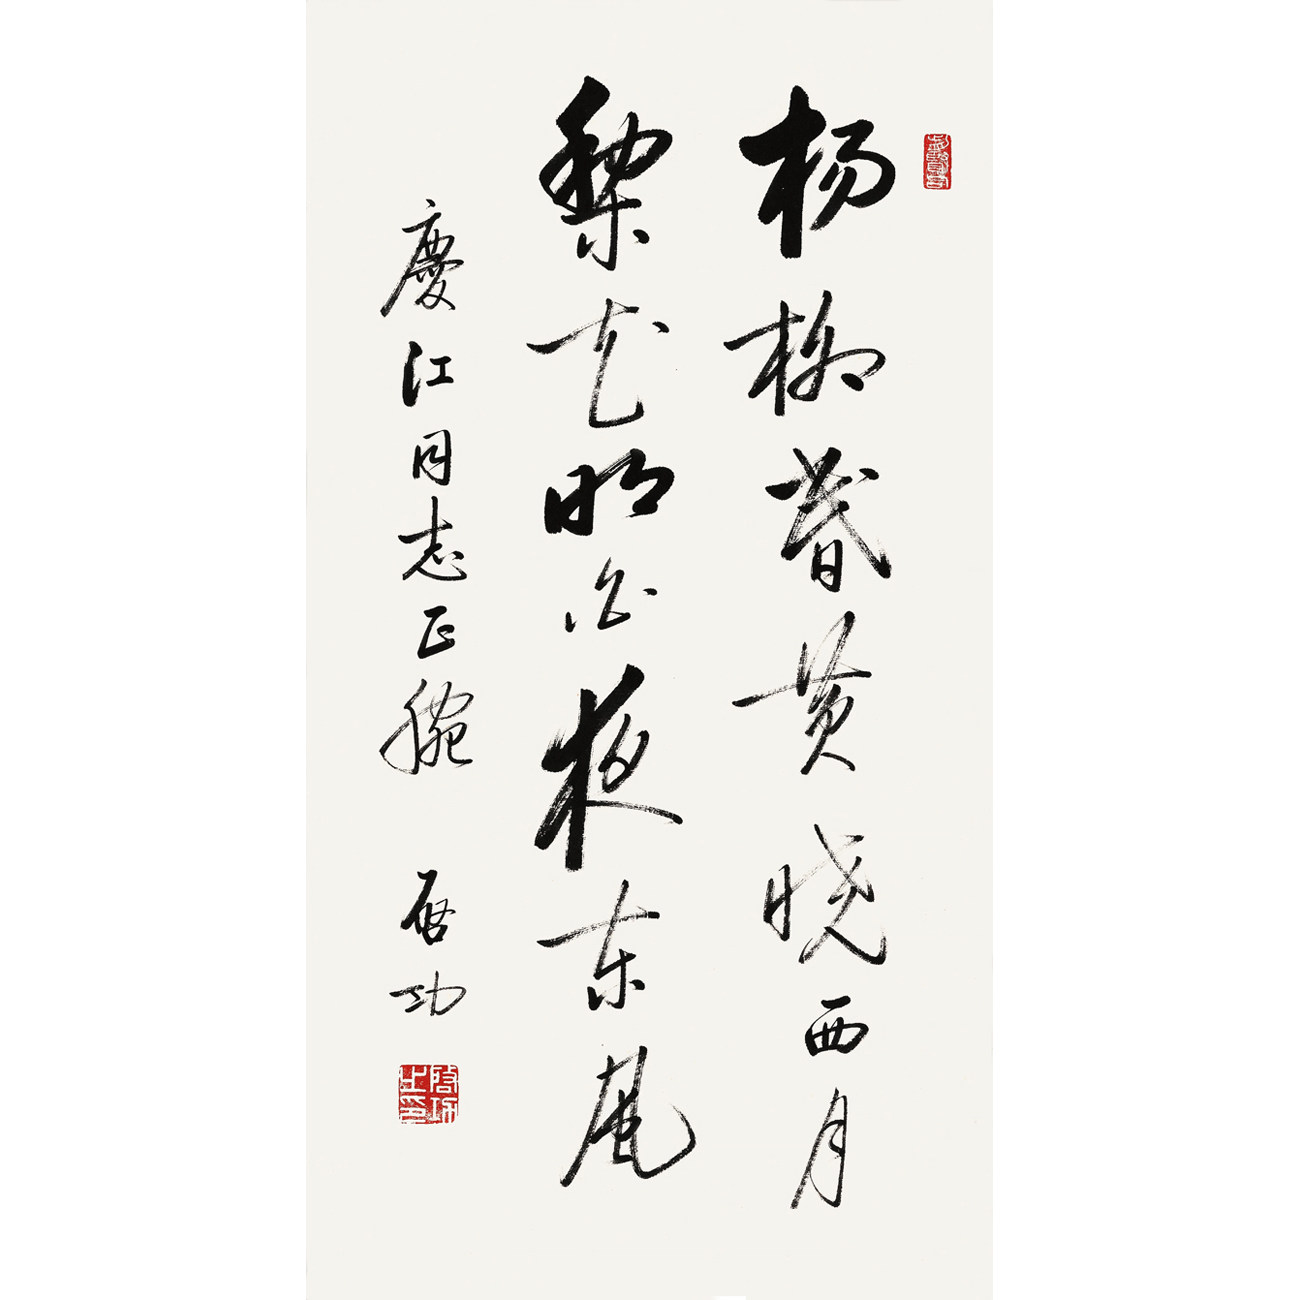 杨柳昏黄晓西月
梨花明白夜东风
慶江同志正腕 启功
启功之印